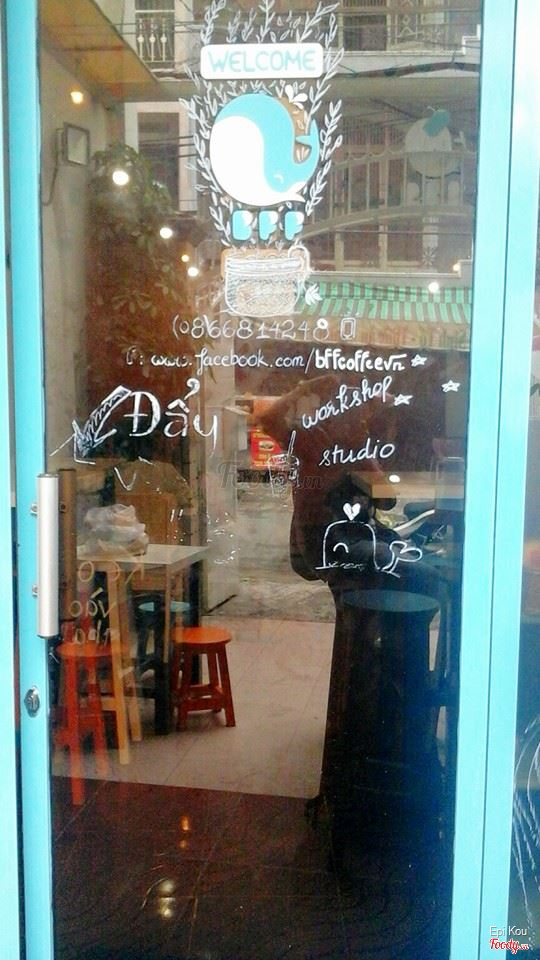 WELCOME
BFF
(08)66814248
f: www.facebook.com/bffcoffeevn
Đẩy
workshop
studio
Foody.vn
KÉO
vào
nha
Epi Kou
Foody.vn